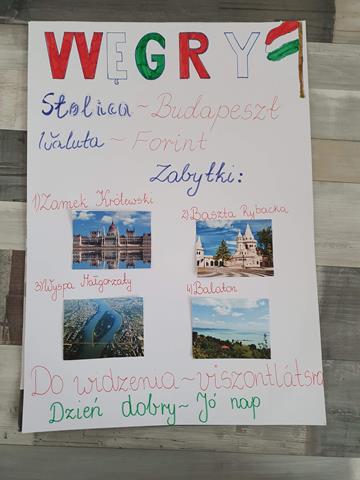 WĘGRY
Stolica ~ Budapeszt
Waluta ~ Forint
Zabytki:
1) Zamek Królewski
2) Baszta Rybacka
3) Wyspa Małgorzaty
4) Balaton
Do widzenia ~ viszontlátsra
Dzień dobry ~ Jó nap